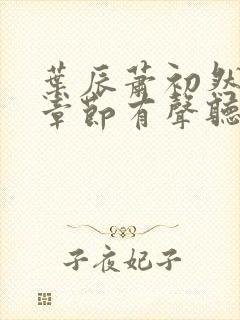 葉辰蕭初然
章節有聲聽
子夜妃子